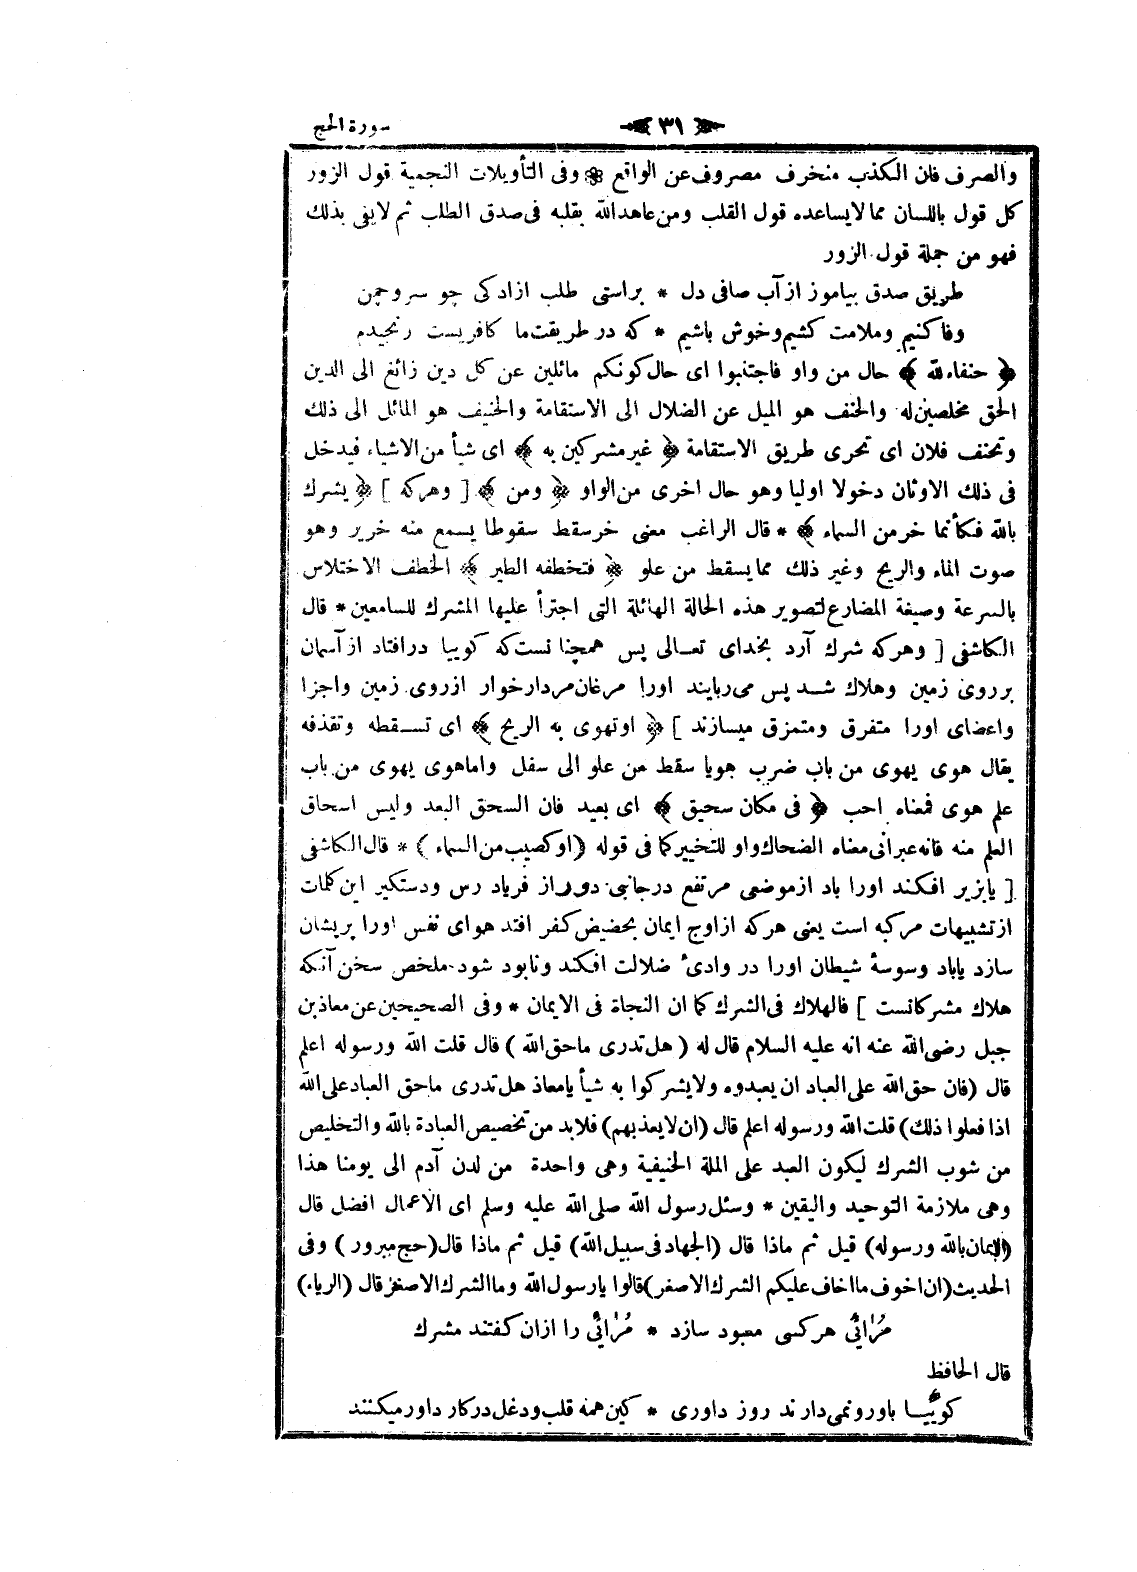 سورة الحج ﴿ ٣١ ﴾
والصرف فان الكذب منخرف مصروف عن الواقع * وفى التأويلات النجمية قول الزور
كل قول باللسان مما لايساعده قول القلب ومن عاهد الله بقلبه فى صدق الطلب ثم لايفى بذلك
فهو من جملة قول الزور
طريق صدق بياموز از آب صافى دل * براستى طلب ازادكى چو سرو چمن
وفا كنيم وملامت كشيم وخوش باشيم * كه در طريقت ما كافريست رنجيدم
﴿ حنفاء لله ﴾ حال من واو فاجتنبوا اى حال كونكم مائلين عن كل دين زائغ الى الدين
الحق مخلصين له والحنف هو الميل عن الضلال الى الاستقامة والحنيف هو المائل الى ذلك
وتحنف فلان اى تحرى طريق الاستقامة ﴿ غير مشركين به ﴾ اى شيأ من الاشياء فيدخل
فى ذلك الاوثان دخولا اوليا وهو حال اخرى من الواو ﴿ ومن ﴾ [ وهركه ] ﴿ يشرك
بالله فكأنما خر من السماء ﴾ * قال الراغب معنى خر سقط سقوطا يسمع منه خرير وهو
صوت الماء والريح وغير ذلك مما يسقط من علو ﴿ فتخطفه الطير ﴾ الخطف الاختلاس
بالسرعة وصيغة المضارع لتصوير هذه الحالة الهائلة التى اجترأ عليها المشرك للسامعين * قال
الكاشفى [ وهركه شرك آرد بخداى تعالى پس همچنانست كه كوييا درافتاد از آسمان
برروى زمين وهلاك شد پس مى ربايند اورا مرغان مردارخوار ازروى زمين واجزا
واعضاى اورا متفرق ومتمزق ميسازند ] ﴿ اوتهوى به الريح ﴾ اى تسقطه وتقذفه
يقال هوى يهوى من باب ضرب هويا سقط من علو الى سفل واما هوى يهوى من باب
علم هوى فمعناه احب ﴿ فى مكان سحيق ﴾ اى بعيد فان السحق البعد وليس اسحاق
العلم منه فانه عبرانى معناه الضحاك واو للتخيير كما فى قوله ( اوكصيب من السماء ) * قال الكاشفى
[ يابزير افكند اورا باد ازموضعى مرتفع درجانبى دور از فرياد رس ودستكير اين كلمات
ازتشبيهات مركبه است يعنى هركه ازاوج ايمان بحضيض كفر افتد هواى نفس اورا پريشان
سازد ياباد وسوسۀ شيطان اورا در وادئ ضلالت افكند ونابود شود ملخص سخن آنكه
هلاك مشركانست ] فالهلاك فى الشرك كما ان النجاة فى الايمان * وفى الصحيحين عن معاذ بن
جبل رضى الله عنه انه عليه السلام قال له ( هل تدرى ماحق الله ) قال قلت الله ورسوله اعلم
قال (فان حق الله على العباد ان يعبدوه ولايشركوا به شيأ يامعاذ هل تدرى ماحق العباد على الله
اذا فعلوا ذلك) قلت الله ورسوله اعلم قال (ان لايعذبهم) فلابد من تخصيص العبادة بالله والتخليص
من شوب الشرك ليكون العبد على الملة الحنيفية وهى واحدة من لدن آدم الى يومنا هذا
وهى ملازمة التوحيد واليقين * وسئل رسول الله صلى الله عليه وسلم اى الاعمال افضل قال
(الايمان بالله ورسوله) قيل ثم ماذا قال (الجهاد فى سبيل الله) قيل ثم ماذا قال (حج مبرور) وفى
الحديث (ان اخوف مااخاف عليكم الشرك الاصغر) قالوا يارسول الله وما الشرك الاصغر قال (الرياء)
مُرائى هركسى معبود سازد * مُرائى را ازان كفتند مشرك
قال الحافظ
كوييا باورنمى دارند روز داورى * كين همه قلب ودغل دركار داور ميكنند